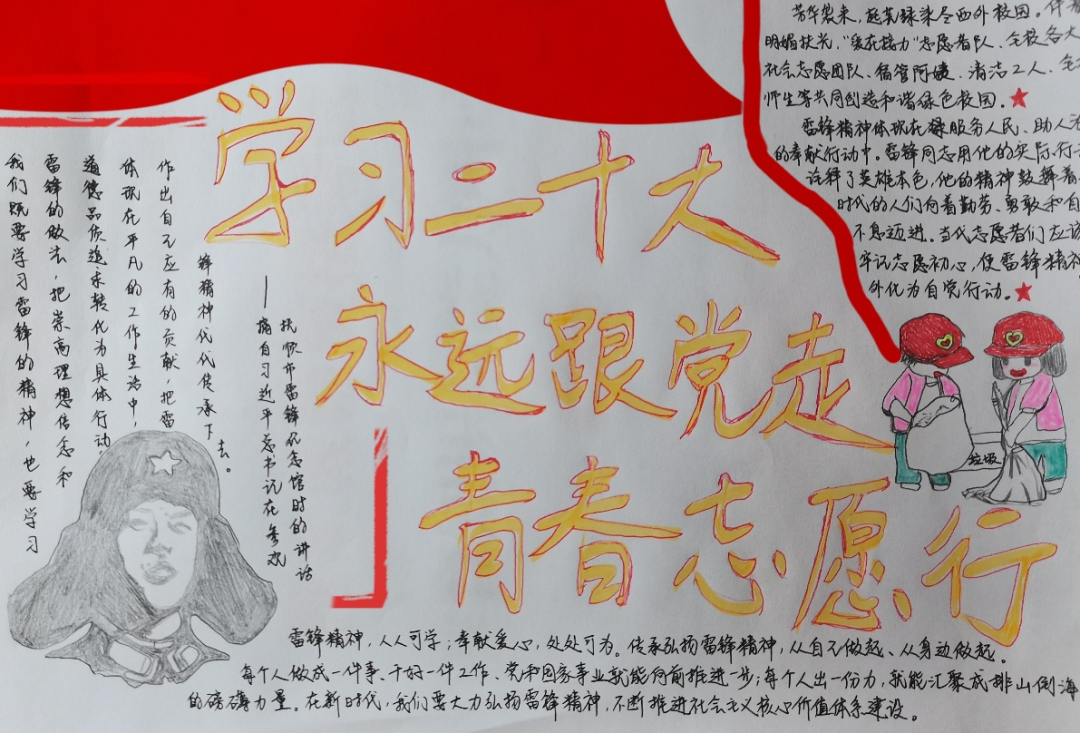 学习二十大
永远跟党走
青春志愿行
我们既要学习雷锋的精神，也要学习
雷锋的做法，把崇高理想信念和
道德品质追求转化为具体行动，
体现在平凡的工作生活中，
作出自己应有的贡献，把雷
锋精神代代传承下去。
——摘自习近平总书记在参观
抚顺市雷锋纪念馆时的讲话
芳华袭来，延英绿染尽西外校园。伴
明媚扶光，“爱在接力”志愿者队、全校各大
社会志愿团队、宿管阿姨、清洁工人、全
师生等共同创造和谐绿色校园。
雷锋精神体现在服务人民、助人
的奉献行动中。雷锋同志用他的实际行
诠释了英雄本色，他的精神鼓舞着
时代的人们向着勤劳、勇敢和自
不息迈进。当代志愿者们应该
牢记志愿初心，使雷锋精神
外化为自觉行动。
垃圾
雷锋精神，人人可学；奉献爱心，处处可为。传承弘扬雷锋精神，从自己做起、从身边做起。
每个人做成一件事、干好一件工作、党和国家事业就能向前推进一步；每个人出一份力，就能汇聚成排山倒海
的磅礴力量。在新时代，我们要大力弘扬雷锋精神，不断推进社会主义核心价值体系建设。